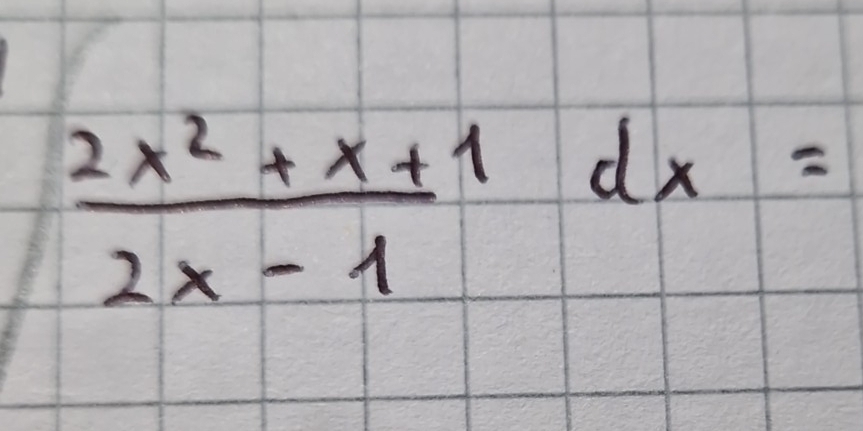 ∫ (2x² + x + 1)/(2x - 1) dx =